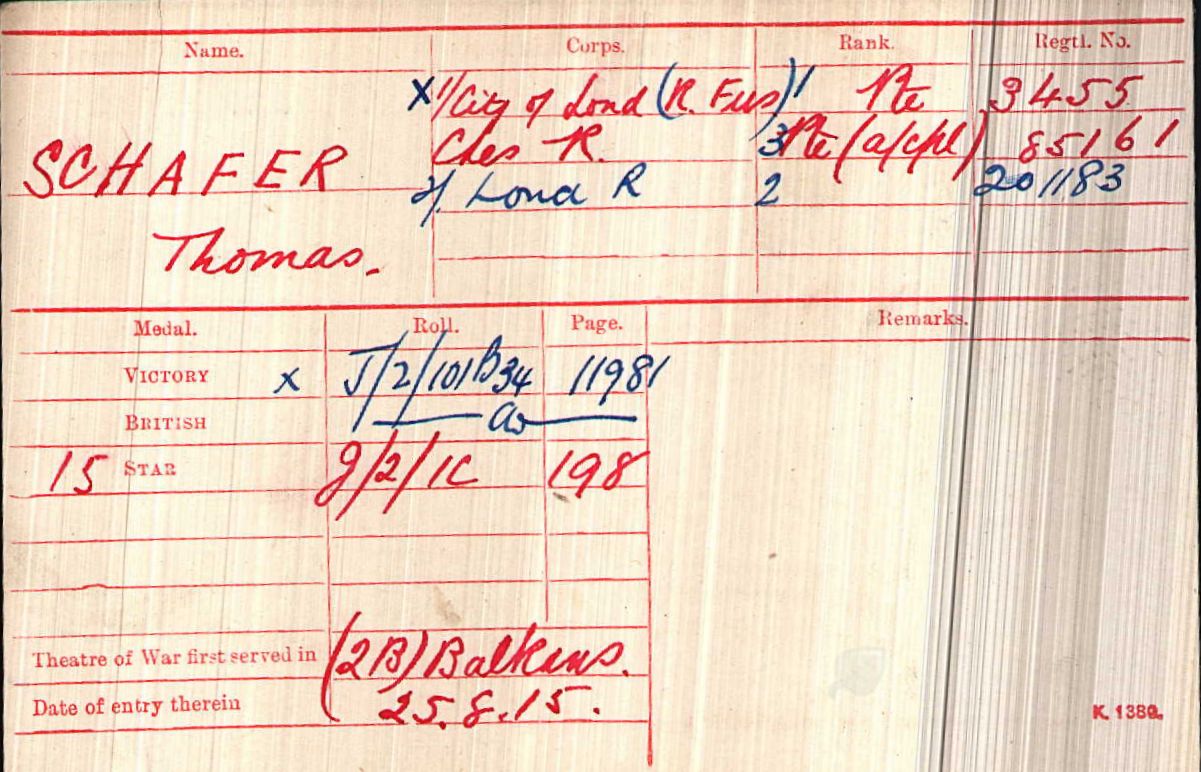 Name. Corps. Rank. Regtl. No.
X 1/City of Lond (R. Fus) 1 Pte 3455
SCHAFER Ches R. 3 Pte (a/cpl) 85161
2/. Lond R 2 201183
Thomas.
Medal. Roll. Page. Remarks.
VICTORY X J/2/101B34 11981
BRITISH
15 STAR J/2/1C 198
Theatre of War first served in (2B) Balkans.
Date of entry therein 25.8.15.
K. 1380.